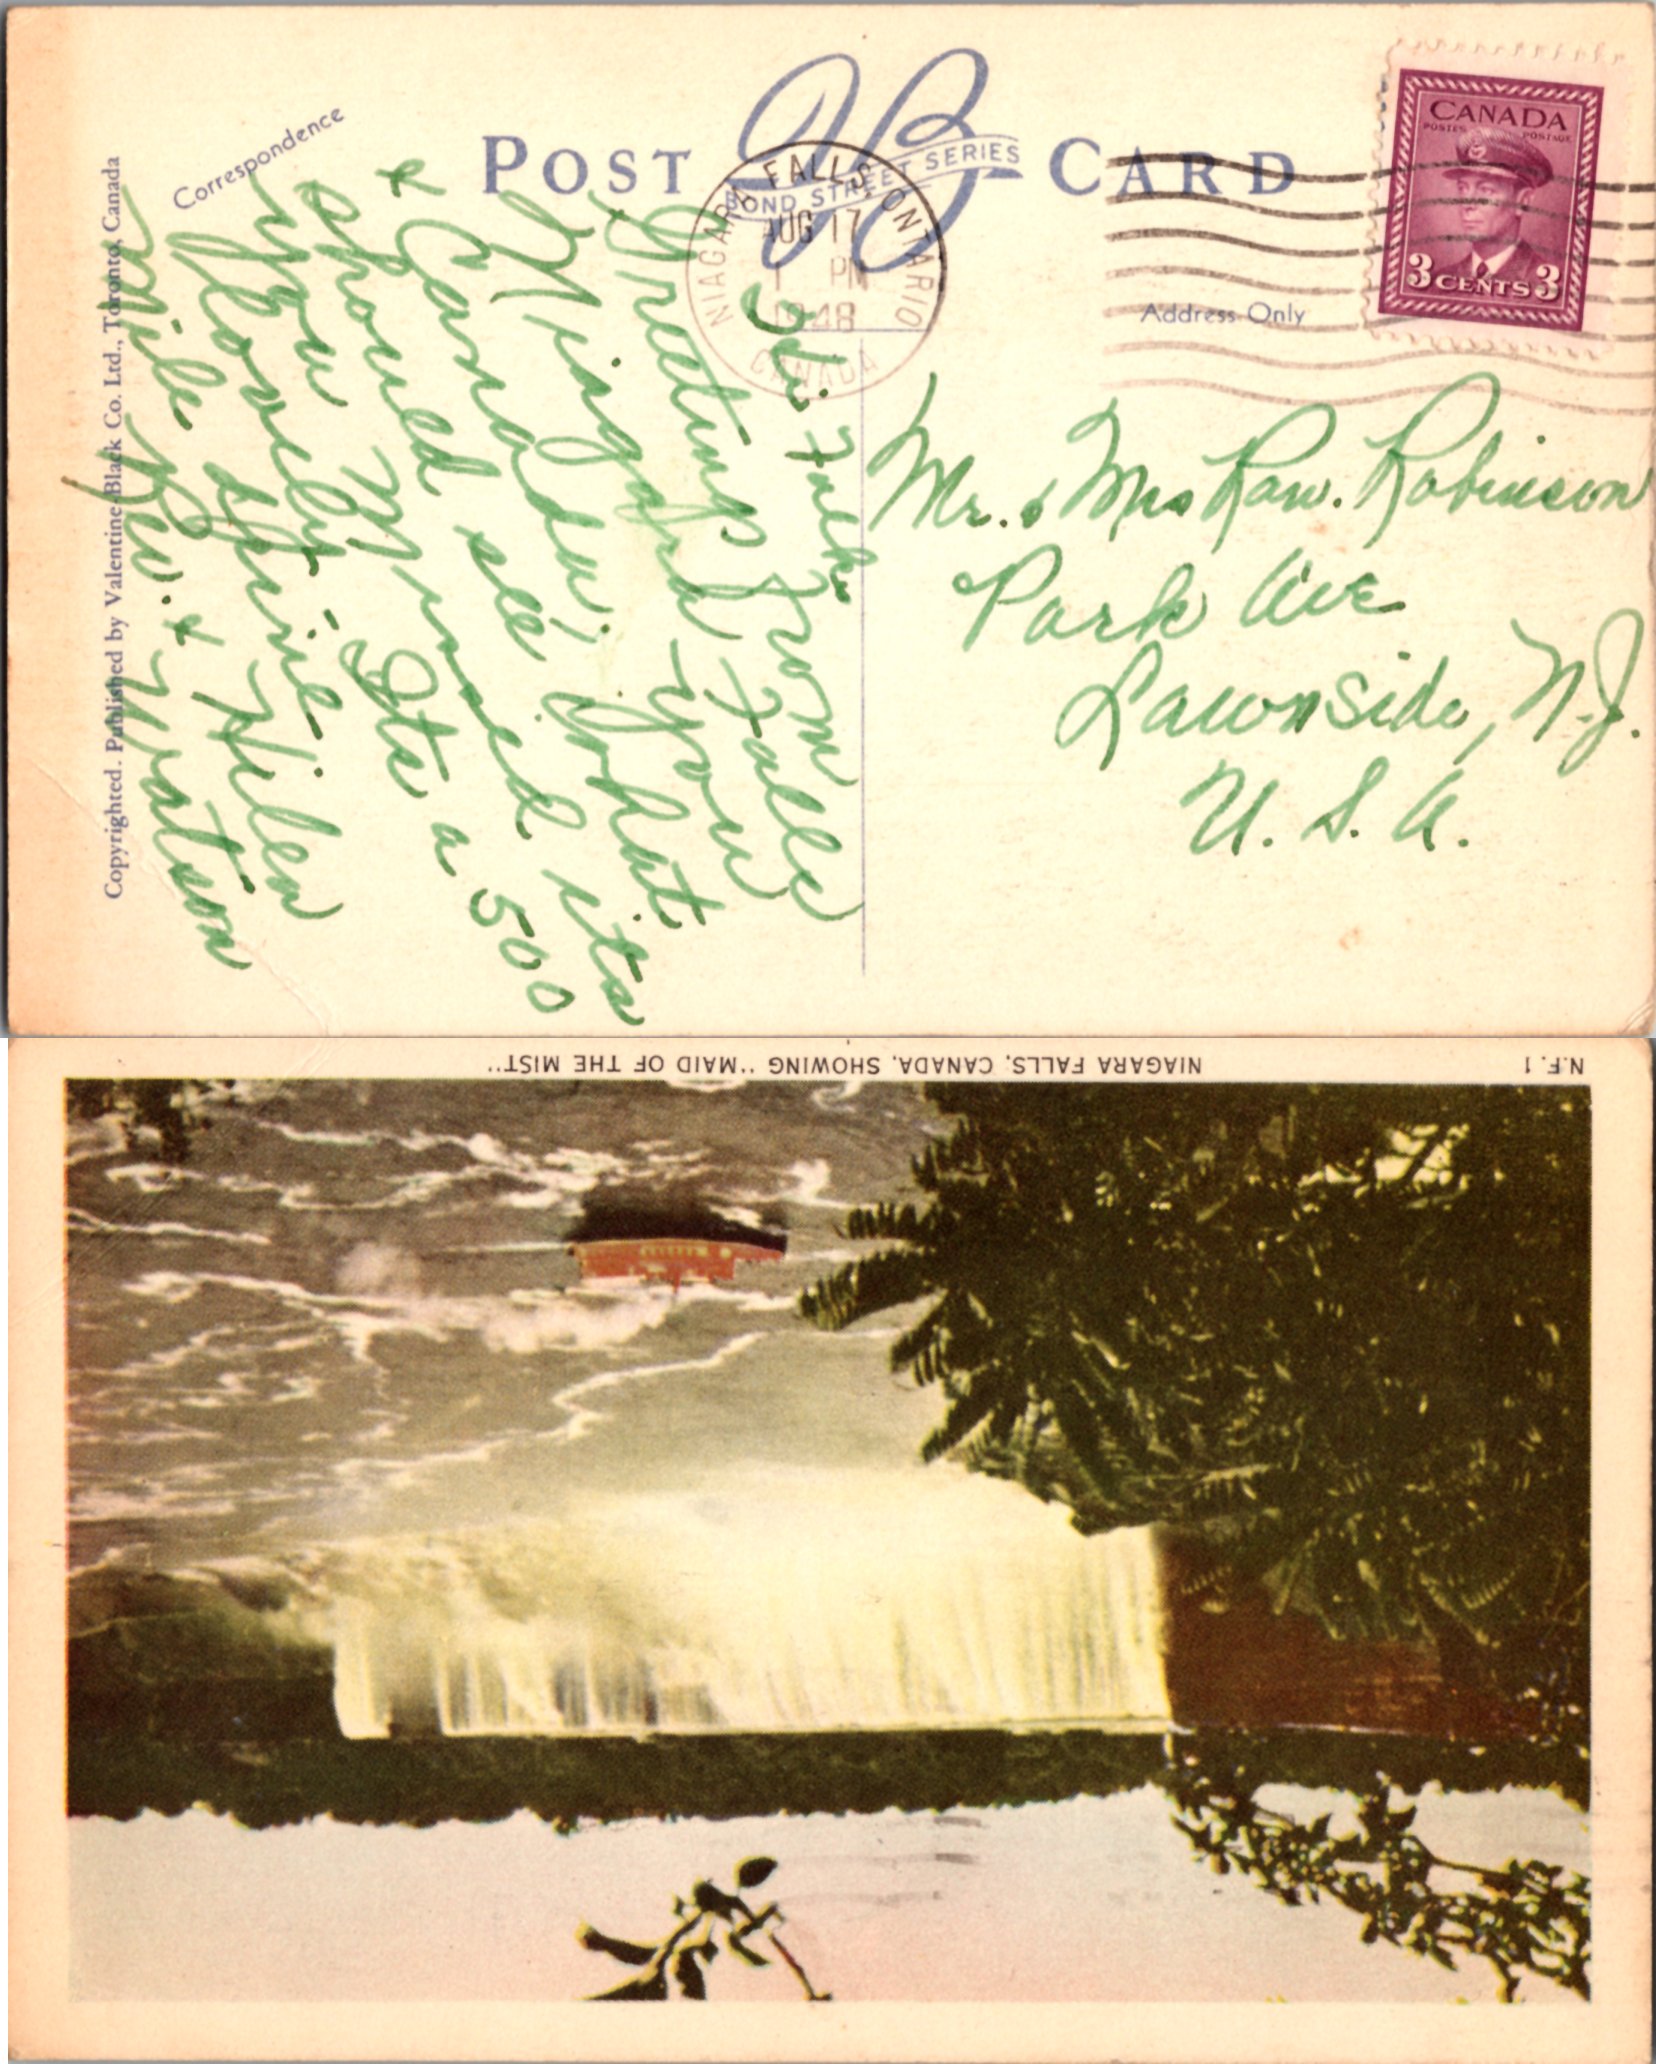 Correspondence
POST CARD
BOND STREET SERIES
NIAGARA FALLS ONTARIO
AUG 17
1 PM
1948
CANADA
CANADA
POSTES POSTAGE
3 CENTS 3
Address Only
Copyrighted. Published by Valentine-Black Co. Ltd., Toronto, Canada
Hi Folks
Greetings From
Niagara Falls
& Canada. You
should see what
you missed its
lovely - Its a 500
mile shine -
Rev. & Helen
Watson
Mr. & Mrs Raw. Robinson
Park Ave
Lawnside, N.J.
U.S.A.
N.F.1
NIAGARA FALLS, CANADA, SHOWING "MAID OF THE MIST".